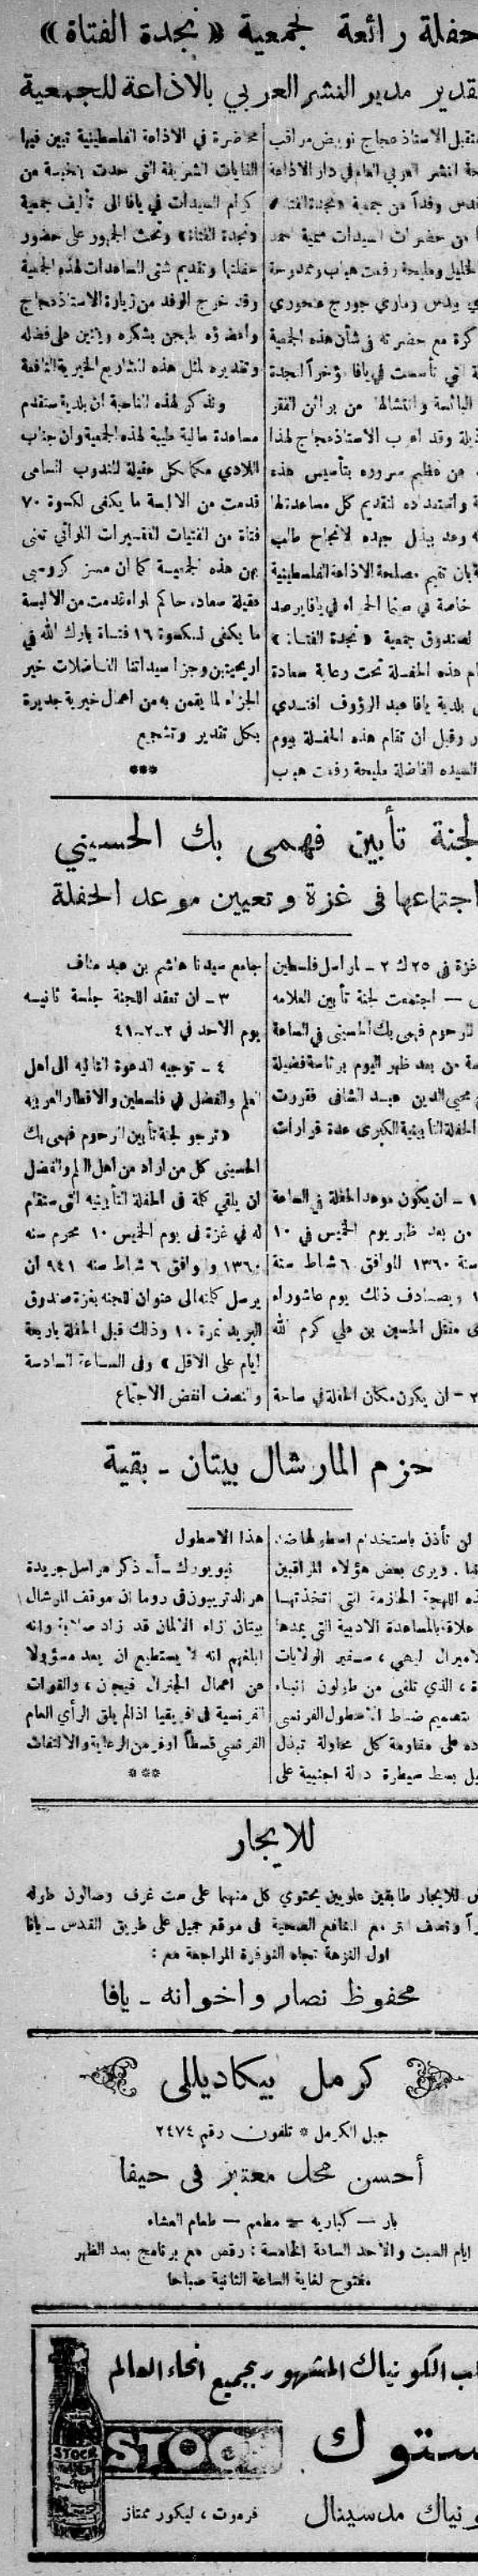 حفلة رائعة لجمعية «نجدة الفتاة»
تقدير مدير النشر العربي بالاذاعة للجمعية
الاستاذ عجاج نويهض مراقب
النشر العربي العام في دار الاذاعة
وفداً من جمعية «نجدة الفتاة»
من حضرات السيدات سمية حمد
الخليل ومليحة رفعت هباب وممدوحة
بيدس وماري جورج منصوري
مع حضرته في شأن هذه الجمعية
التي تأسست في يافا مؤخراً لنجدة
البائسة وانتشالها من براثن الفقر
وقد اعرب الاستاذ عجاج لهذا
عن عظيم سروره بتأسيس هذه
واستعداده لتقديم كل مساعدة لها
وعد ببذل جهده لانجاح طلب
بان تقيم مصلحة الاذاعة الفلسطينية
خاصة في سينما الحمراء في يافا يرصد
لصندوق جمعية «نجدة الفتاة»
هذه الحفلة تحت رعاية سعادة
بلدية يافا عبد الرؤوف افندي
وقبل ان تقام هذه الحفلة بيوم
السيده الفاضلة مليحة رفعت هباب
محاضرة في الاذاعة الفلسطينية تبين فيها
الغايات الشريفة التي حدت بنخبة من
كرام السيدات في يافا الى تأليف جمعية
«نجدة الفتاة» وتحث الجمهور على حضور
حفلتها وتقديم شتى المساعدات لهذه الجمعية
وقد خرج الوفد من زيارة الاستاذ عجاج
واعضاؤه يلهجن بشكره ويثنين على فضله
وتقديره لمثل هذه المشاريع الخيرية النافعة
ونذكر لهذه المناسبة ان بلدية ستقدم
مساعدة مالية طيبة لهذه الجمعية وان جناب
اللادي مكمايكل عقيلة المندوب السامي
قدمت من الالبسة ما يكفى لكسوة ٧٠
فتاة من الفتيات الفقيرات اللواتي تعنى
بهن هذه الجمعية كما ان مسز كروسبى
عقيلة سعادة حاكم اللواء قدمت من الالبسة
ما يكفى لكسوة ١٦ فتاة بارك الله في
اريحيتهن وجزا سيداتنا الفاضلات خير
الجزاء لما يقمن به من اعمال خيرية جديرة
بكل تقدير وتشجيع
***
لجنة تأبين فهمى بك الحسيني
اجتماعها فى غزة وتعيين موعد الحفلة
غزة في ٢٥ ك ٢ - لمراسل فلسطين
— اجتمعت لجنة تأبين العلامه
المرحوم فهمى بك الحسينى فى الساعة
من بعد ظهر اليوم برئاسة فضيلة
محيي الدين عبد الشافى فقررت
الحفلة التأبينية الكبرى عدة قرارات
١ - ان يكون موعد الحفلة في الساعة
من بعد ظهر يوم الخميس في ١٠
سنة ١٣٦٠ الموافق ٦ شباط سنة
ويصادف ذلك يوم عاشوراء
مقتل الحسين بن علي كرم الله
٢ - ان يكون مكان الحفلة في ساحة
جامع سيدنا هاشم بن عبد مناف
٣ - ان تعقد اللجنة جلسة ثانيه
يوم الاحد في ٢-٢-٤١
٤ - توجيه الدعوة التاليه الى اهل
العلم والفضل في فلسطين والاقطار العربيه
«ترجو لجنة تأبين المرحوم فهمى بك
الحسينى كل من اراد من اهل العلم والفضل
ان يلقي كلمة فى الحفلة التأبينيه التى ستقام
له في غزة فى يوم الخميس ١٠ محرم سنه
١٣٦٠ والموافق ٦ شباط سنه ٩٤١ ان
يرسل كلمته الى عنوان اللجنه بغزة صندوق
البريد نمرة ١٠ وذلك قبل الحفلة باربعة
ايام على الاقل» وفى الساعة السادسة
والنصف انفض الاجتماع
حزم المارشال بيتان - بقية
لن تأذن باستخدام اسطولها ضد
ويرى بعض هؤلاء المراقبين
اللهجة الحازمة التى اتخذتها
علاقة بالمساعدة الادبية التى يمدها
الاميرال ليهي، سفير الولايات
الذي تلقى من طولون انباء
بتصميم ضباط الاسطول الفرنسى
على مقاومة كل محاولة تبذل
بسط سيطرة دولة اجنبية على
هذا الاسطول
نيويورك - أ - ذكر مراسل جريدة
هرالد تريبون فى روما ان موقف المارشال
بيتان ازاء الالمان قد زاد صلابة وانه
ابلغهم انه لا يستطيع ان يعد مسؤولا
عن اعمال الجنرال فيجان، والقوات
الفرنسية في افريقيا اذا لم يلق الرأي العام
الفرنسي قسطاً اوفر من الرعاية والالتفات
***
للايجار
للايجار طابقين علويين يحتوي كل منهما على ست غرف وصالون طوله
ونصف متر مع المنافع الصحية فى موقع جميل على طريق القدس - يافا
اول النزهة تجاه النوفرة المراجعة مع:
محفوظ نصار واخوانه - يافا
كرمل بيكاديللى
جبل الكرمل * تلفون رقم ٢٤٧٤
أحسن محل معتبر فى حيفا
بار — كباريه — مطعم — طعام العشاء
ايام السبت والاحد الساعة الخامسة: رقص مع برنامج بعد الظهر
مفتوح لغاية الساعة الثانية صباحا
الكونياك المشهور بجميع انحاء العالم
ستوك
STOCK
STOCK
كونياك مدسينال
فرموت، ليكور ممتاز